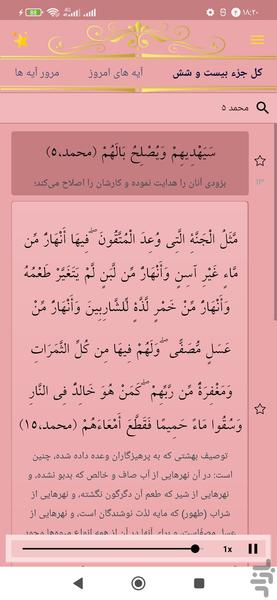 ۱۸:۲۰
کل جزء بیست و شش
آیه های امروز
مرور آیه ها
محمد ۵
سَیَهْدِیهِمْ وَیُصْلِحُ بَالَهُمْ (محمد،۵)
بزودی آنان را هدایت نموده و کارشان را اصلاح می‌کند؛
۱۳
مَّثَلُ الْجَنَّهِ الَّتِی وُعِدَ الْمُتَّقُونَ ۖ فِیهَا أَنْهَارٌ مِّن
مَّاءٍ غَیْرِ آسِنٍ وَأَنْهَارٌ مِّن لَّبَنٍ لَّمْ یَتَغَیَّرْ طَعْمُهُ
وَأَنْهَارٌ مِّنْ خَمْرٍ لَّذَّهٍ لِّلشَّارِبِینَ وَأَنْهَارٌ مِّنْ
عَسَلٍ مُّصَفًّى ۖ وَلَهُمْ فِیهَا مِن کُلِّ الثَّمَرَاتِ
وَمَغْفِرَهٌ مِّن رَّبِّهِمْ ۖ کَمَنْ هُوَ خَالِدٌ فِی النَّارِ
وَسُقُوا مَاءً حَمِیمًا فَقَطَّعَ أَمْعَاءَهُمْ (محمد،۱۵)
توصیف بهشتی که به پرهیزگاران وعده داده شده، چنین
است: در آن نهرهایی از آب صاف و خالص که بدبو نشده، و
نهرهایی از شیر که طعم آن دگرگون نگشته، و نهرهایی از
شراب (طهور) که مایه لذت نوشندگان است، و نهرهایی از
عسل مصفاست، و برای آنها در آن از همه انواع میوه‌ها وجود
1x
بازار